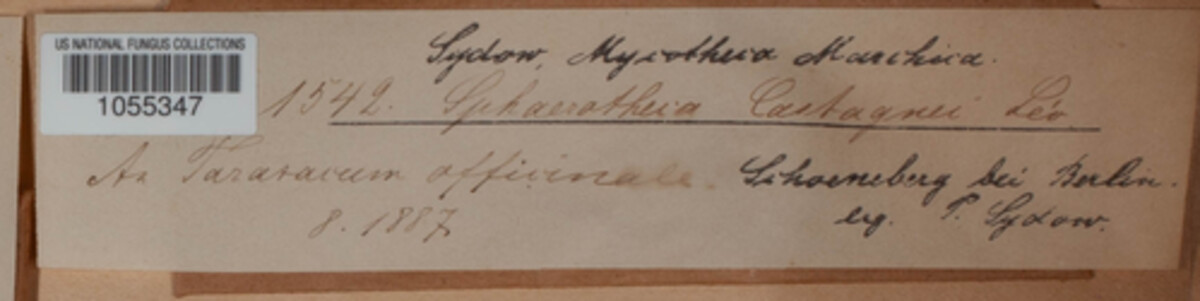 US NATIONAL FUNGUS COLLECTIONS
1055347
Sydow, Mycotheca Marchica.
1542. Sphaerotheca Castagnei Lév
An Taraxacum officinale. Schoeneberg bei Berlin.
8. 1887 leg. P. Sydow.